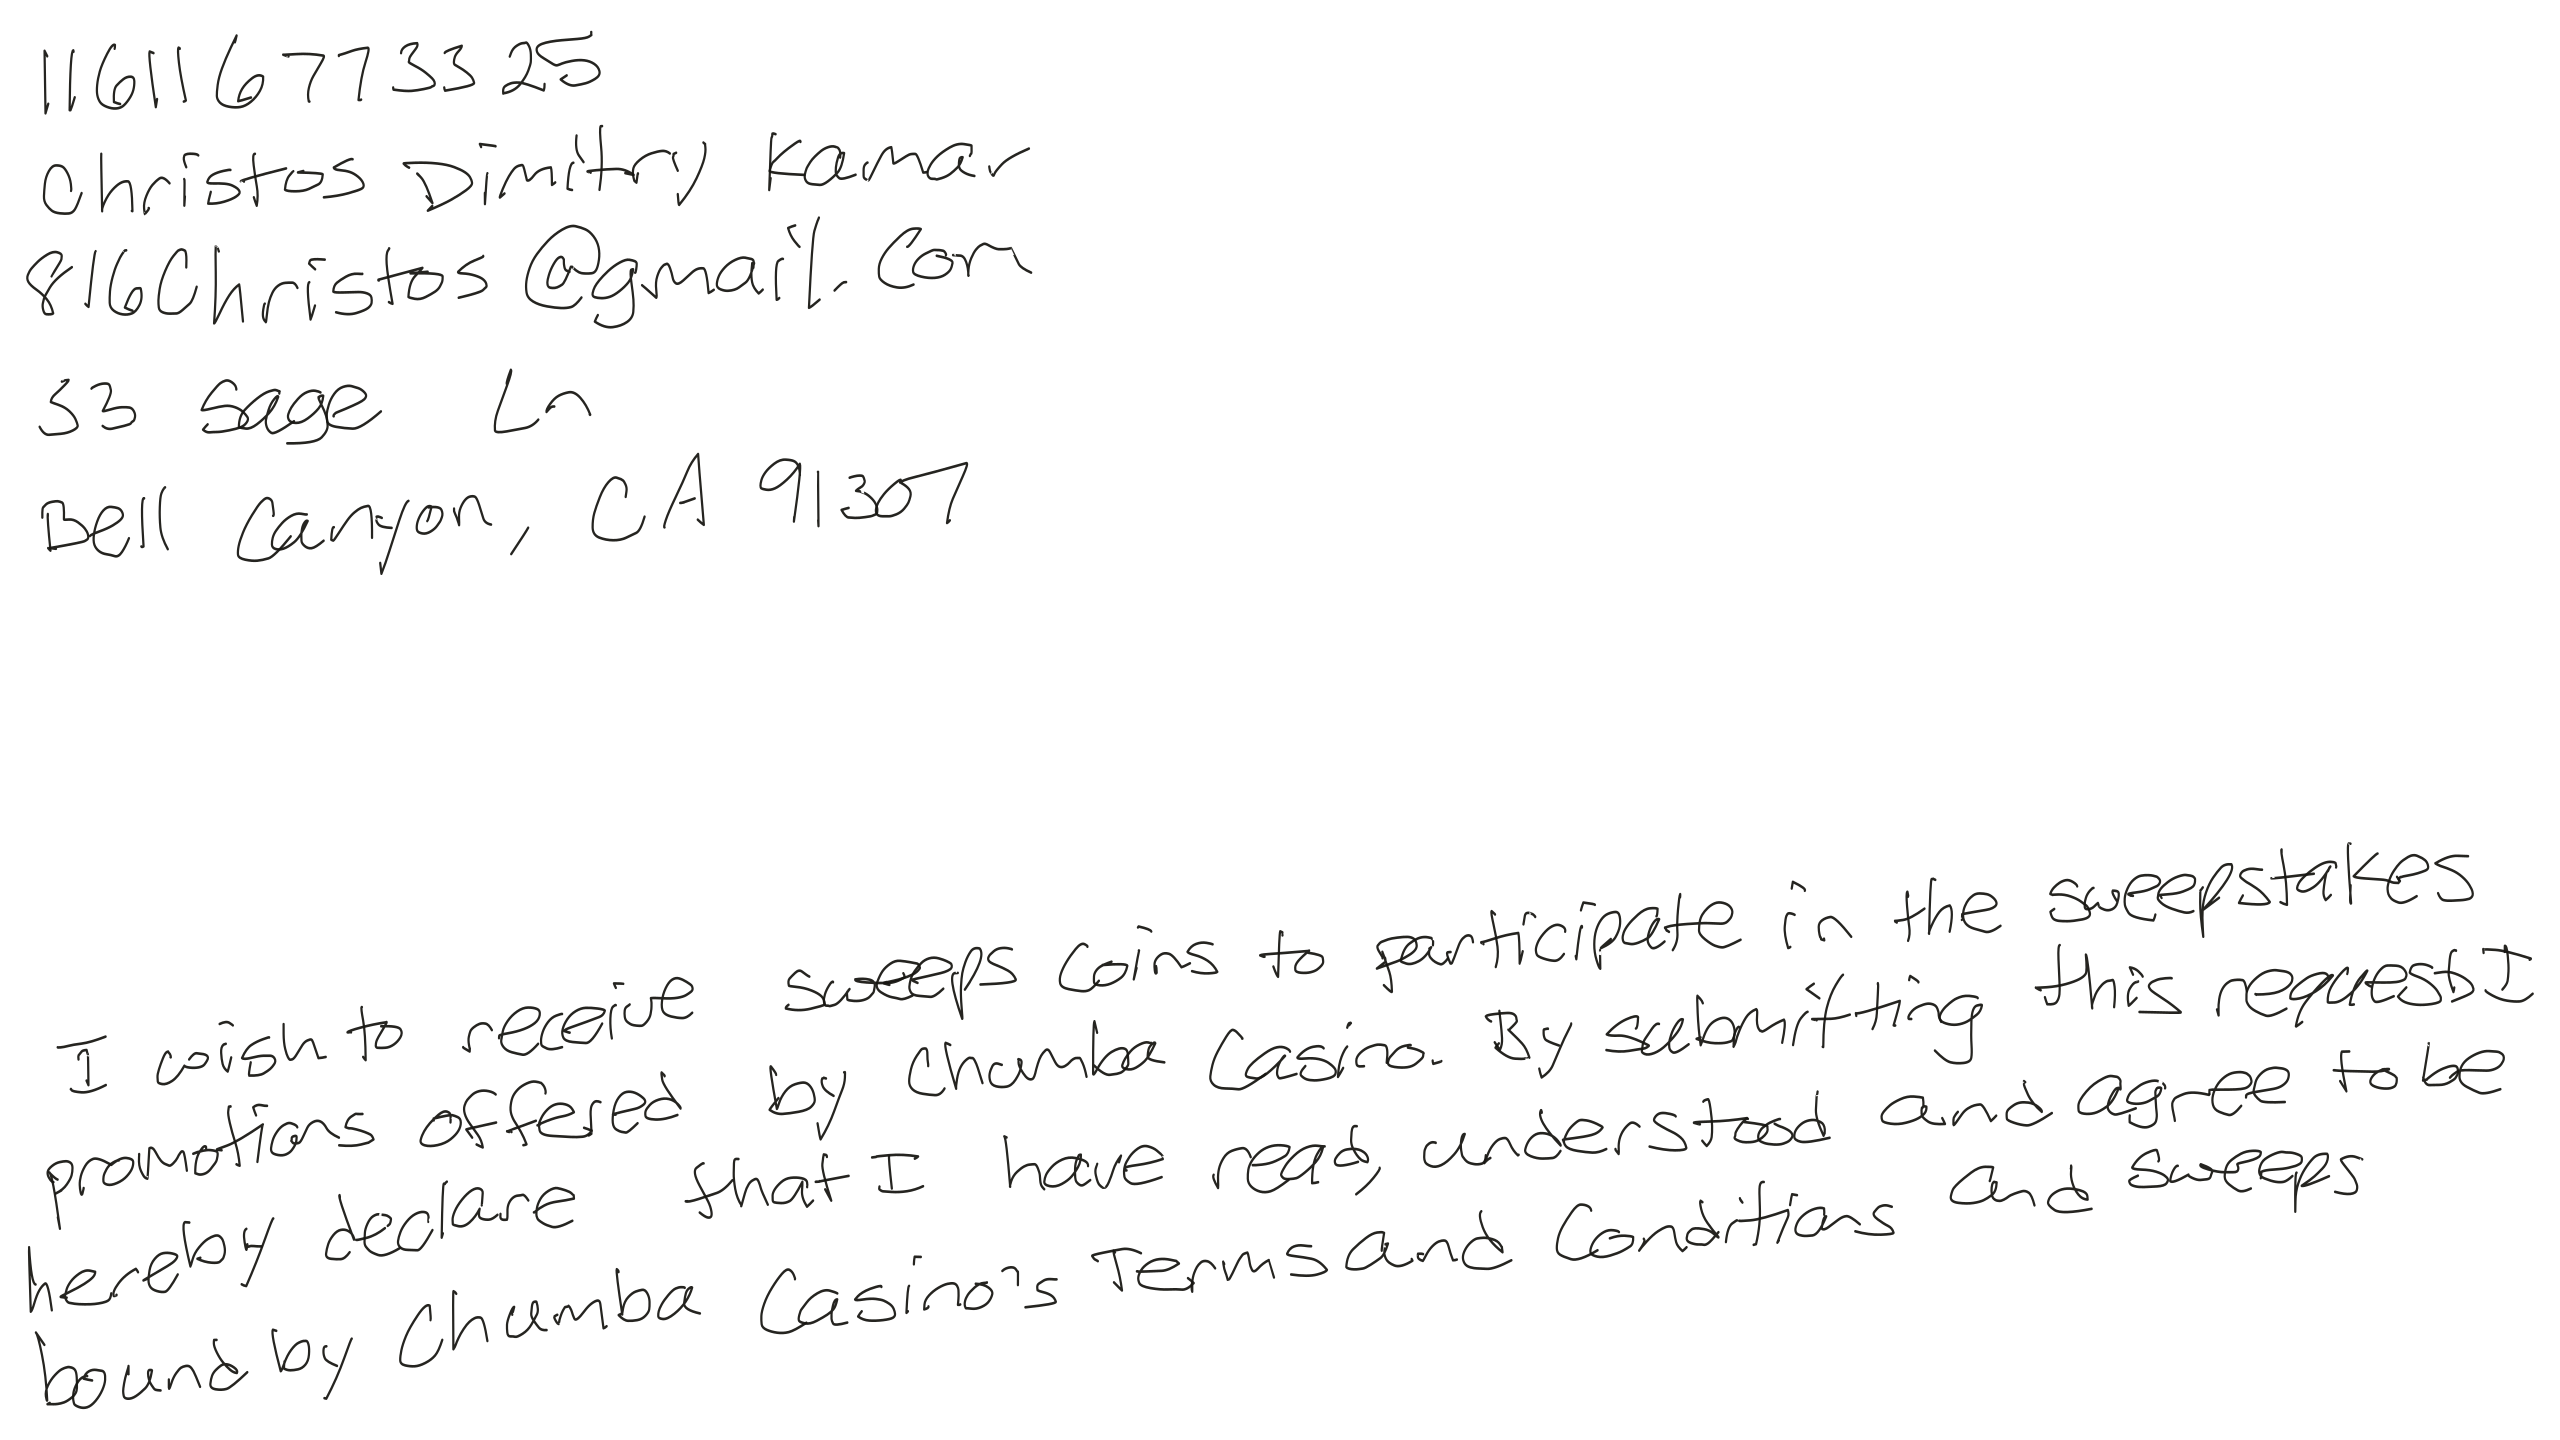 116116773325
Christos Dimitry Kamar
816Christos@gmail.com
33 Sage Ln
Bell Canyon, CA 91307
I wish to receive sweeps coins to participate in the sweepstakes
promotions offered by Chumba Casino. By submitting this request, I
hereby declare that I have read, understood and agree to be
bound by Chumba Casino's Terms and Conditions and sweeps